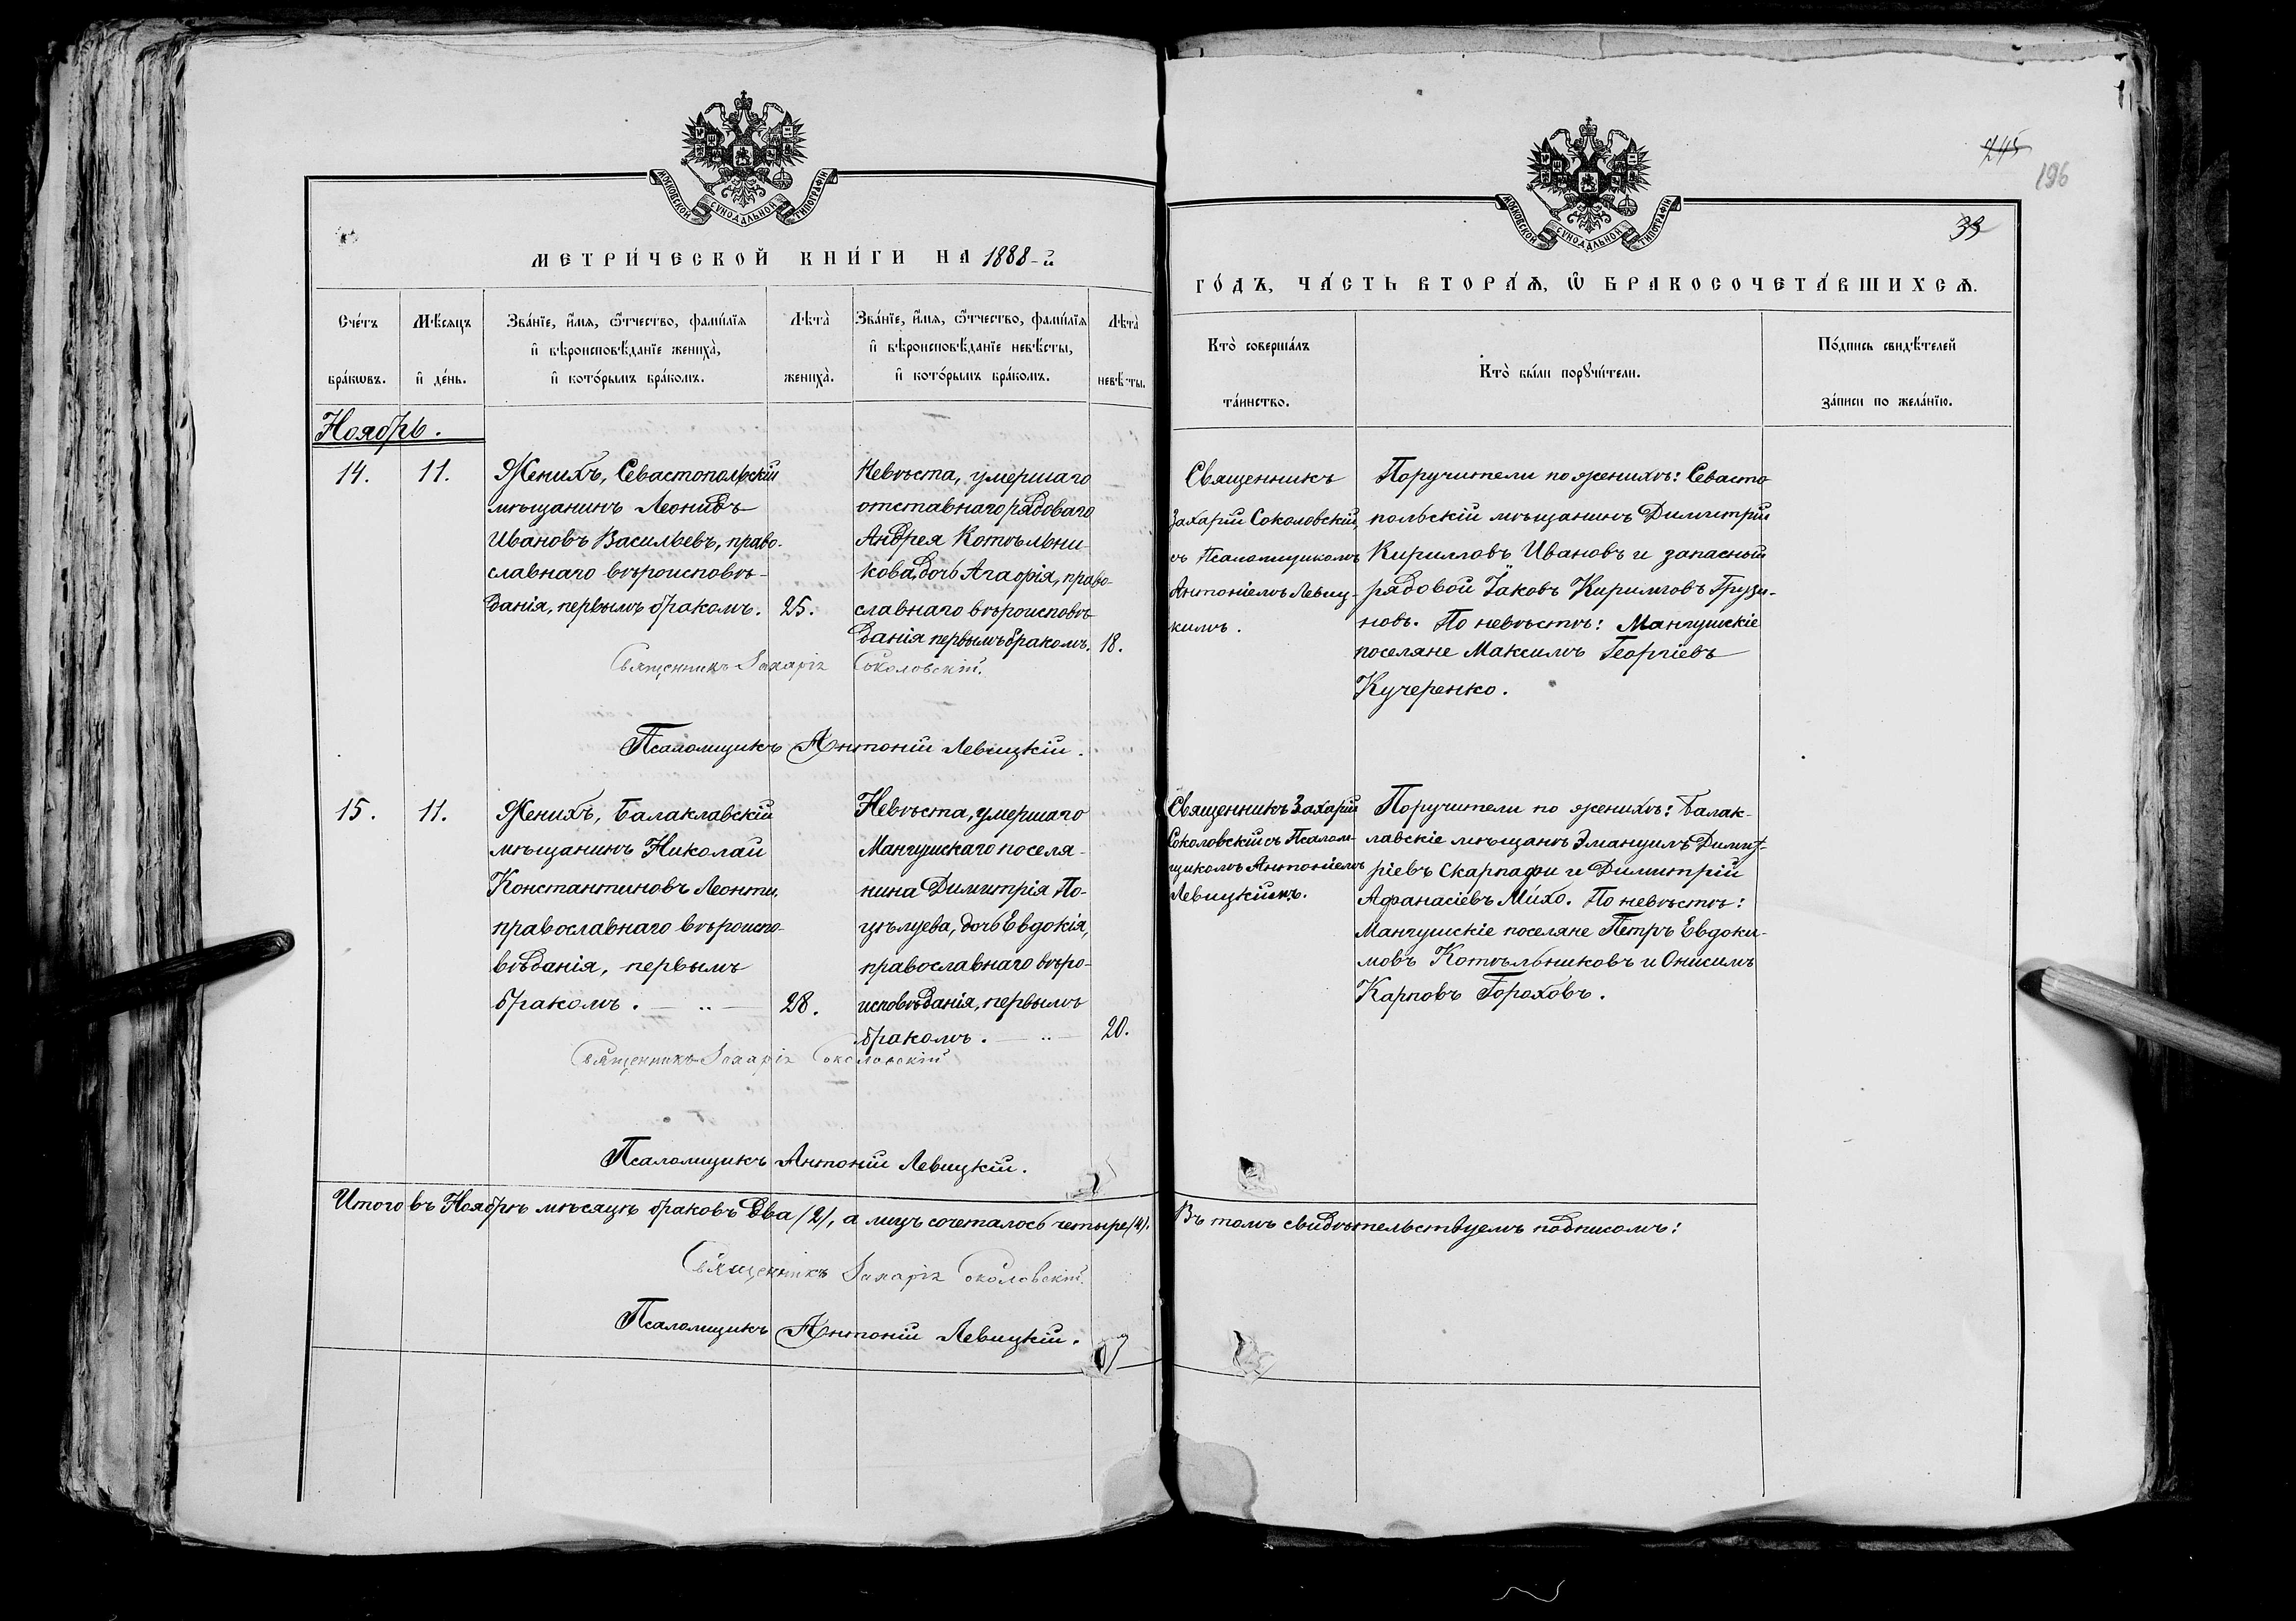 МОСКОВСКОЙ СУНОДАЛЬНОЙ ТИПОГРАФІИ
МЕТРИ́ЧЕСКОЙ КНИ́ГИ НА 1888-й
Сче́тъ бра́кѡвъ.
Мѣ́сяцъ и҆ де́нь.
Зва́нїе, и҆́мѧ, ѻ҆́тчество, фами́лїѧ и҆ вѣроисповѣ́данїе жениха̀, и҆ кото́рымъ бра́комъ.
Лѣта̀ жениха̀.
Зва́нїе, и҆́мѧ, ѻ҆́тчество, фами́лїѧ и҆ вѣроисповѣ́данїе невѣ́сты, и҆ кото́рымъ бра́комъ.
Лѣта̀ невѣ́сты.
Ноябрь.
14.
11.
Женихъ, Севастопольскій
мѣщанинъ Леонидъ
Ивановъ Васильевъ, право-
славнаго вѣроисповѣ-
данія, первымъ бракомъ.
25.
Невѣста, умершаго
отставнаго рядоваго
Андрея Котѣльни-
кова, дочь Агафія, право-
славнаго вѣроисповѣ-
данія первымъ бракомъ.
18.
Священникъ Захарія Соколовскій.
Псаломщикъ Антоній Левицкій.
15.
11.
Женихъ, Балаклавскій
мѣщанинъ Николай
Константиновъ Леонти,
православнаго вѣроиспо-
вѣданія, первымъ
бракомъ. — .. —
28.
Невѣста, умершаго
Мангушскаго поселя-
нина Димитрія По-
цѣлуева, дочь Евдокія,
православнаго вѣро-
исповѣданія, первымъ
бракомъ. — .. —
20.
Священникъ Захарія Соколовскій
Псаломщикъ Антоній Левицкій.
Итого въ Ноябрѣ мѣсяцѣ браковъ два /2/, а лицъ сочеталось четыре /4/.
Священникъ Захарія Соколовскій.
Псаломщикъ Антоній Левицкій.
245
196
МОСКОВСКОЙ СУНОДАЛЬНОЙ ТИПОГРАФІИ
33
ГО́ДЪ, ЧА́СТЬ ВТОРА́Ѧ, Ѡ҆ БРАКОСОЧЕТА́ВШИХСѦ.
Кто̀ соверша́лъ та́инство.
Кто̀ бы́ли порꙋчи́тели.
По́дпись свидѣ́телей за́писи по жела́нїю.
Священникъ
Захарій Соколовскій,
съ Псаломщикомъ
Антоніемъ Левиц-
кимъ.
Поручители по женихѣ: Севасто
польскій мѣщанинъ Димитрій
Кирилловъ Ивановъ и запасный
рядовой Іаковъ Кирилловъ Грузи-
новъ. По невѣстѣ: Мангушскіе
поселяне Максимъ Георгіевъ
Кучеренко.
Священникъ Захарій
Соколовскій съ Псалом-
щикомъ Антоніемъ
Левицкимъ.
Поручители по женихѣ: Балак-
лавскіе мѣщане Эмануилъ Димит-
ріевъ Скарпафи и Димитрій
Афанасіевъ Михо. По невѣстѣ:
Мангушскіе поселяне Петръ Евдоки-
мовъ Котѣльниковъ и Онисимъ
Карповъ Гороховъ.
Въ томъ свидѣтельствуемъ подписомъ: